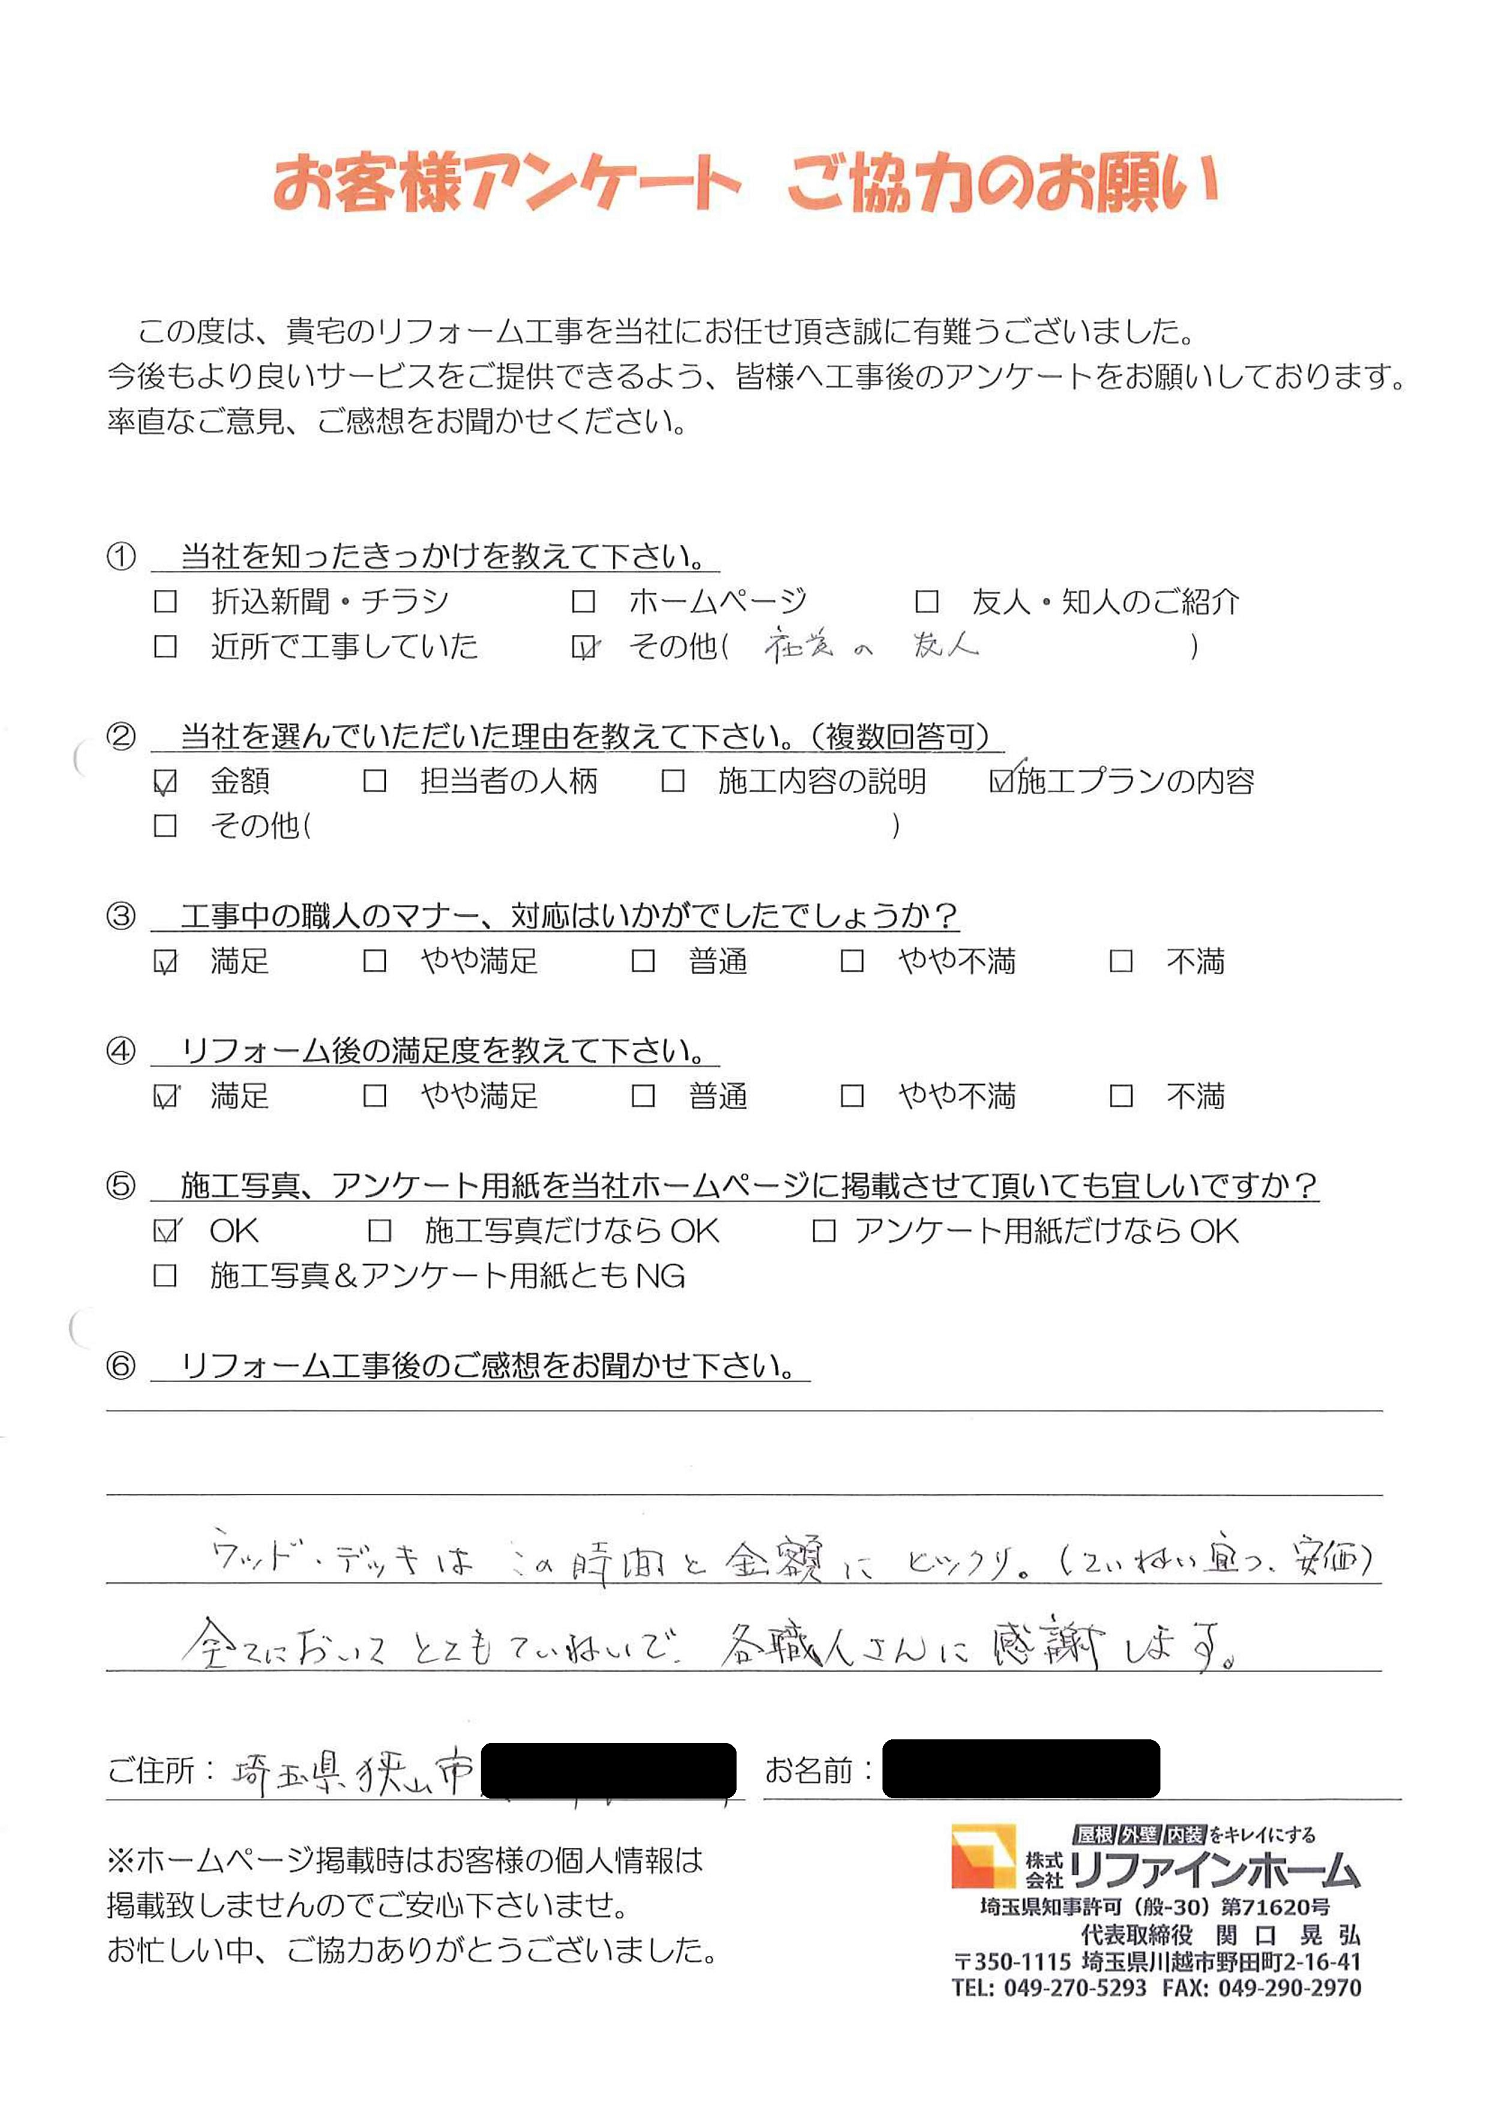 お客様アンケート ご協力のお願い
この度は、貴宅のリフォーム工事を当社にお任せ頂き誠に有難うございました。
今後もより良いサービスをご提供できるよう、皆様へ工事後のアンケートをお願いしております。
率直なご意見、ご感想をお聞かせください。
① 当社を知ったきっかけを教えて下さい。
□ 折込新聞・チラシ □ ホームページ □ 友人・知人のご紹介
□ 近所で工事していた ☑ その他( 社営の 友人 )
② 当社を選んでいただいた理由を教えて下さい。(複数回答可)
☑ 金額 □ 担当者の人柄 □ 施工内容の説明 ☑施工プランの内容
□ その他( )
③ 工事中の職人のマナー、対応はいかがでしたでしょうか？
☑ 満足 □ やや満足 □ 普通 □ やや不満 □ 不満
④ リフォーム後の満足度を教えて下さい。
☑ 満足 □ やや満足 □ 普通 □ やや不満 □ 不満
⑤ 施工写真、アンケート用紙を当社ホームページに掲載させて頂いても宜しいですか？
☑ OK □ 施工写真だけなら OK □ アンケート用紙だけなら OK
□ 施工写真＆アンケート用紙とも NG
⑥ リフォーム工事後のご感想をお聞かせ下さい。
ウッド・デッキは この時間と金額に ビックリ。(ていねい宜つ、安価)
全てにおいて とてもていねいで、各職人さんに 感謝します。
ご住所：埼玉県狭山市 お名前：
※ホームページ掲載時はお客様の個人情報は
掲載致しませんのでご安心下さいませ。
お忙しい中、ご協力ありがとうございました。
屋根/外壁/内装をキレイにする
株式会社リファインホーム
埼玉県知事許可（般-30）第71620号
代表取締役 関口 晃弘
〒350-1115 埼玉県川越市野田町2-16-41
TEL: 049-270-5293 FAX: 049-290-2970